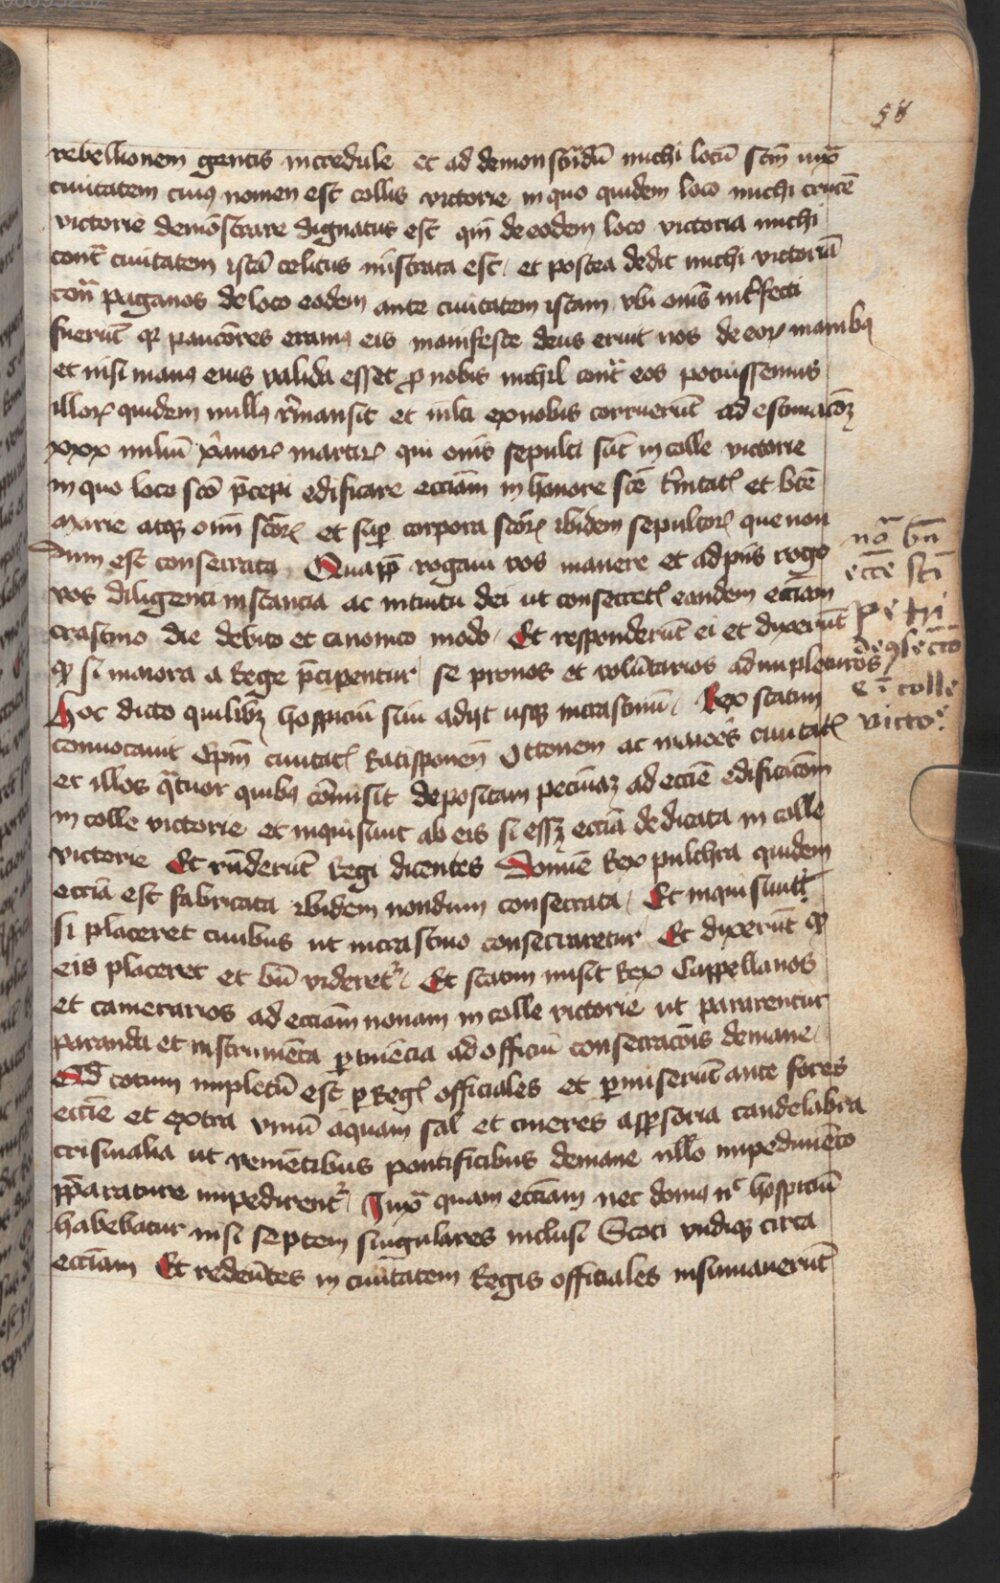 58
rebellionem gentis incredule et ad demonstrādū michi locū scm̄ iux̄
ciuitatem cuiꝯ nomen est collis victorie in quo quidem loco michi crucē
victorie demōstrare dignatus est qm̄ de eodem loco victoria michi
cont͛ ciuitatem istā celitus mīstrata est et postea dedit michi victoriā
cont͛ paganos de loco eodem ante ciuitatem istam vbi om̄s int͛fecti
fuerūt qꝫ paucōres eramꝯ eis manifeste deus eruit nos de eoꝝ manibꝯ
et nisi manꝯ eius valida esset ꝓ nobis nichil cont͛ eos potuissemus
illoꝝ quidem nullꝯ r̄mansit et m̄lti ex nobis corruerūt ad estimacōꝫ
xxx miliū xp̄ianoꝝ martirꝝ qui om̄s sepulti sūt in colle victorie
in quo loco scō p̄cepi edificare ecciām in honore scē t͛nitatꝭ et btē
Marie atqꝫ om̄i scōꝝ et suꝑ corpora scōꝝ ibidem sepultoꝝ que non
dum est consecrata Quaꝓp̄ rogaui vos manere et adhuc rogo
vos diligenti instancia ac intuitu dei ut consecretꝭ eandem ecciam
crastino die debito et canonico modo Et responderūt ei et dixerūt
qꝫ si maiora a Rege p̄ciperentur se pronos et volūtarios adimpleturos
Hoc dicto quilibꝫ hospiciū suū adijt usqꝫ in crastinū Rex statim
conuocauit Ep̄m ciuitatꝭ Ratisponen̄ Ottonem ac maiores ciuitatꝭ
et illos q̄tuor quibꝯ cōmisit depositam pecuniaꝫ ad ecciē edificacōm
in colle victorie et inquisiuit ab eis si esset eccia dedicata in colle
victorie Et rn̄derūt Regi dicentes Domine Rex pulchra quidem
eccia est fabricata ibidem nondum consecrata Et inquisiuit
si placeret ciuibus ut in crastino consecraretur Et dixerūt qꝫ
eis placeret et bn̄ videret͛ Et statim misit Rex Cappellanos
et camerarios ad ecciam nouam in colle victorie ut pararentur
paranda et instrumēta ꝑtinēcia ad officiū consecracōis de mane
Qd̄ totum impletū est ꝑ Regꝭ officiales et ꝑmiserūt ante fores
eccie et extra vinū aquam sal et cineres aspersoria candelabra
crismalia ut venientibus pontificibus de mane nullo impedimēto
p̄parature impedirent͛ Iuxᷓ quam ecciam nec domꝯ nᶜ hospiciū
habebatur nisi septem singulares inclusi Scoti vndiqꝫ circa
ecciam Et redeūtes in ciuitatem Regis officiales insinuauerūt
nōᷓ bn̄
ecce scī
petri
de ꝯsecrō
e ī colle
victoꝭ